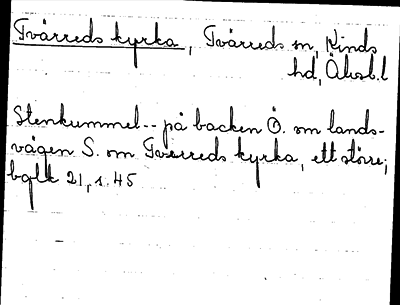 Tvärreds kyrka, Tvärreds sn, Kinds
hd, Älvsb.l
Stenkummel -- på backen Ö. om lands-
vägen S. om Tvärreds kyrka, ett större;
bglk 21, s. 45